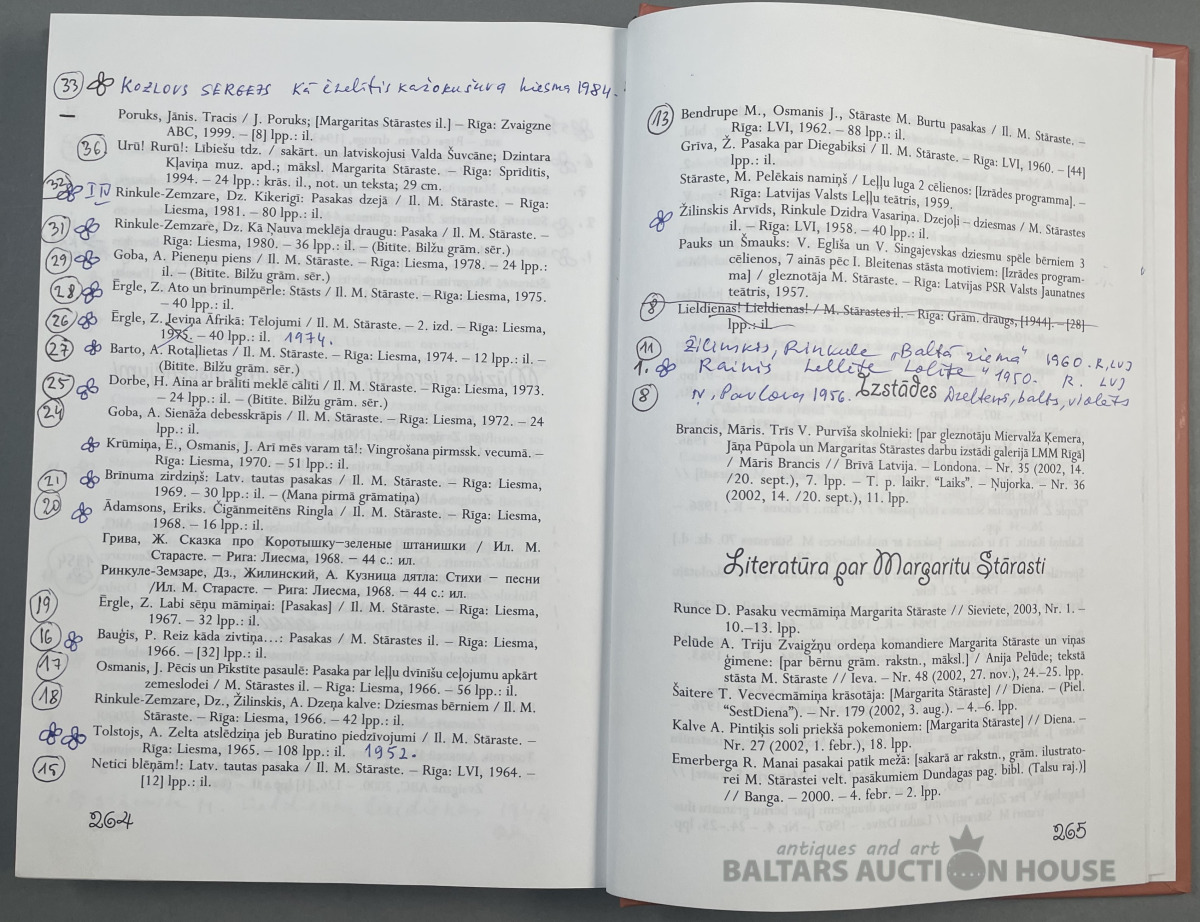 33 KOZLOVS SERGEJS Kā ezelītis kažoku šuva Liesma 1984.
– Poruks, Jānis. Tracis / J. Poruks; [Margaritas Stārastes il.] – Rīga: Zvaigzne
ABC, 1999. – [8] lpp.: il.
36 Urū! Rurū!: Lībiešu tdz. / sakārt. un latviskojusi Valda Šuvcāne; Dzintara
Kļaviņa muz. apd.; māksl. Margarita Stāraste. – Rīga: Sprīdītis,
1994. – 24 lpp.: krās. il., not. un teksta; 29 cm.
32 I IV Rinkule-Zemzare, Dz. Kikerigī: Pasakas dzejā / Il. M. Stāraste. – Rīga:
Liesma, 1981. – 80 lpp.: il.
31 Rinkule-Zemzare, Dz. Kā Ņauva meklēja draugu: Pasaka / Il. M. Stāraste. –
Rīga: Liesma, 1980. – 36 lpp.: il. – (Bitīte. Bilžu grām. sēr.)
29 Goba, A. Pieneņu piens / Il. M. Stāraste. – Rīga: Liesma, 1978. – 24 lpp.:
il. – (Bitīte. Bilžu grām. sēr.)
28 Ērgle, Z. Ato un brīnumpērle: Stāsts / Il. M. Stāraste. – Rīga: Liesma, 1975.
– 40 lpp.: il.
26 Ērgle, Z. Ieviņa Āfrikā: Tēlojumi / Il. M. Stāraste. – 2. izd. – Rīga: Liesma,
1975. – 40 lpp.: il. 1974.
27 Barto, A. Rotaļlietas / Il. M. Stāraste. – Rīga: Liesma, 1974. – 12 lpp.: il. –
(Bitīte. Bilžu grām. sēr.)
25 Dorbe, H. Aina ar brālīti meklē cālīti / Il. M. Stāraste. – Rīga: Liesma, 1973.
– 24 lpp.: il. – (Bitīte. Bilžu grām. sēr.)
24 Goba, A. Sienāža debesskrāpis / Il. M. Stāraste. – Rīga: Liesma, 1972. – 24
lpp.: il.
Krūmiņa, E., Osmanis, J. Arī mēs varam tā!: Vingrošana pirmssk. vecumā. –
Rīga: Liesma, 1970. – 51 lpp.: il.
21 Brīnuma zirdziņš: Latv. tautas pasakas / Il. M. Stāraste. – Rīga: Liesma,
1969. – 30 lpp.: il. – (Mana pirmā grāmatiņa)
20 Ādamsons, Eriks. Čigānmeitēns Ringla / Il. M. Stāraste. – Rīga: Liesma,
1968. – 16 lpp.: il.
Грива, Ж. Сказка про Коротышку–зеленые штанишки / Ил. М.
Старасте. – Рига: Лиесма, 1968. – 44 с.: ил.
Ринкуле-Земзаре, Дз., Жилинский, А. Кузница дятла: Стихи – песни
/Ил. М. Старасте. – Рига: Лиесма, 1968. – 44 с.: ил.
19 Ērgle, Z. Labi sēņu māmiņai: [Pasakas] / Il. M. Stāraste. – Rīga: Liesma,
1967. – 32 lpp.: il.
16 Bauģis, P. Reiz kāda zivtiņa...: Pasakas / M. Stārastes il. – Rīga: Liesma,
1966. – [32] lpp.: il.
17 Osmanis, J. Pēcis un Pikstīte pasaulē: Pasaka par leļļu dvīnīšu ceļojumu apkārt
zemeslodei / M. Stārastes il. – Rīga: Liesma, 1966. – 56 lpp.: il.
18 Rinkule-Zemzare, Dz., Žilinskis, A. Dzeņa kalve: Dziesmas bērniem / Il. M.
Stāraste. – Rīga: Liesma, 1966. – 42 lpp.: il.
Tolstojs, A. Zelta atslēdziņa jeb Buratino piedzīvojumi / Il. M. Stāraste. –
Rīga: Liesma, 1965. – 108 lpp.: il. 1952.
15 Netici blēņām!: Latv. tautas pasaka / Il. M. Stāraste. – Rīga: LVI, 1964. –
[12] lpp.: il.
264
13 Bendrupe M., Osmanis J., Stāraste M. Burtu pasakas / Il. M. Stāraste. –
Rīga: LVI, 1962. – 88 lpp.: il.
Grīva, Ž. Pasaka par Diegabiksi / Il. M. Stāraste. – Rīga: LVI, 1960. – [44]
lpp.: il.
Stāraste, M. Pelēkais namiņš / Leļļu luga 2 cēlienos: [Izrādes programma]. –
Rīga: Latvijas Valsts Leļļu teātris, 1959.
Žilinskis Arvīds, Rinkule Dzidra Vasariņa. Dzejoļi – dziesmas / M. Stārastes
il. – Rīga: LVI, 1958. – 40 lpp.: il.
Pauks un Šmauks: V. Eglīša un V. Singajevskas dziesmu spēle bērniem 3
cēlienos, 7 ainās pēc I. Bleitenas stāsta motīviem: [Izrādes program-
ma] / gleznotāja M. Stāraste. – Rīga: Latvijas PSR Valsts Jaunatnes
teātris, 1957.
8 Lieldienas! Lieldienas! / M. Stārastes il. – Rīga: Grām. draugs, [1944]. – [28]
lpp.: il.
11 Žilinskis, Rinkule „Baltā ziema" 1960. R, LVI
1. Rainis Lellīte Lolīte" 1950. R. LVI
8 N. Pavlova 1956. Dzeltens, balts, violets
Izstādes
Brancis, Māris. Trīs V. Purvīša skolnieki: [par gleznotāju Miervalža Ķemera,
Jāņa Pūpola un Margaritas Stārastes darbu izstādi galerijā LMM Rīgā]
/ Māris Brancis // Brīvā Latvija. – Londona. – Nr. 35 (2002, 14.
/20. sept.), 7. lpp. – T. p. laikr. “Laiks”. – Ņujorka. – Nr. 36
(2002, 14. /20. sept.), 11. lpp.
Literatūra par Margaritu Stārasti
Runce D. Pasaku vecmāmiņa Margarita Stāraste // Sieviete, 2003, Nr. 1. –
10.–13. lpp.
Pelūde A. Triju Zvaigžņu ordeņa komandiere Margarita Stāraste un viņas
ģimene: [par bērnu grām. rakstn., māksl.] / Anija Pelūde; tekstā
stāsta M. Stāraste // Ieva. – Nr. 48 (2002, 27. nov.), 24.–25. lpp.
Šaitere T. Vecvecmāmiņa krāsotāja: [Margarita Stāraste] // Diena. – (Piel.
“SestDiena”). – Nr. 179 (2002, 3. aug.). – 4.–6. lpp.
Kalve A. Pintiķis soli priekšā pokemoniem: [Margarita Stāraste] // Diena. –
Nr. 27 (2002, 1. febr.), 18. lpp.
Emerberga R. Manai pasakai patīk mežā: [sakarā ar rakstn., grām. ilustrato-
rei M. Stārastei velt. pasākumiem Dundagas pag. bibl. (Talsu raj.)]
// Banga. – 2000. – 4. febr. – 2. lpp.
265
antiques and art
BALTARS AUCTION HOUSE